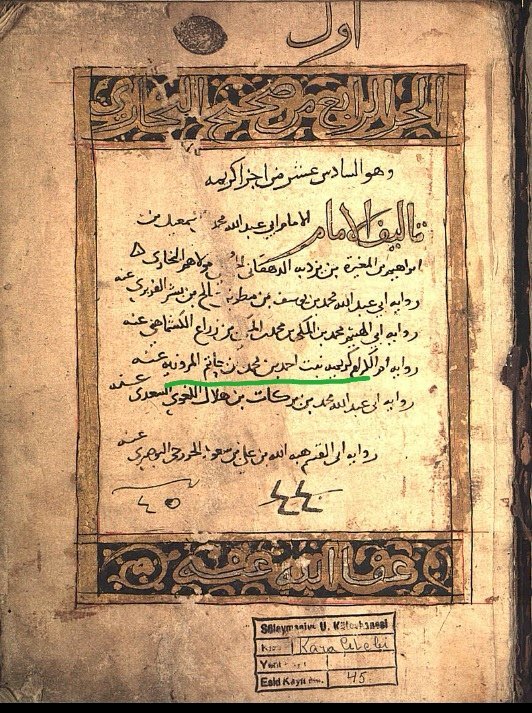 اول
الجزء الرابع من صحيح البخاري
وهو السادس عشر من اجزا كريمه
تاليف الامام
الامام ابي عبد الله محمد اسمعيل بن
ابراهيم بن المغيرة بن بزدبه مولاهم البخاري
روايه ابي عبد الله محمد بن يوسف بن مطر بن بشر الفربري عنه
روايه ابي الهيثم محمد بن المكي بن محمد بن المكي بن زراع الكشماهني عنه
روايه ام الكرام كريمه بنت احمد بن محمد بن حاتم المروزيه عنه
روايه ابي عبد الله محمد بن بركات بن هلال النحوي السعدي عنه
روايه ابي القسم هبه الله بن علي بن مسعود الخزرجي البوصيري عنه
عفا الله عنه
Süleymaniye U. Kütüphanesi
Kara Çelebi
Yeni
Eski Kayıt No. 45